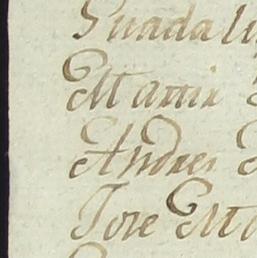 Guadalu
Martin
Andres
Jose Ma